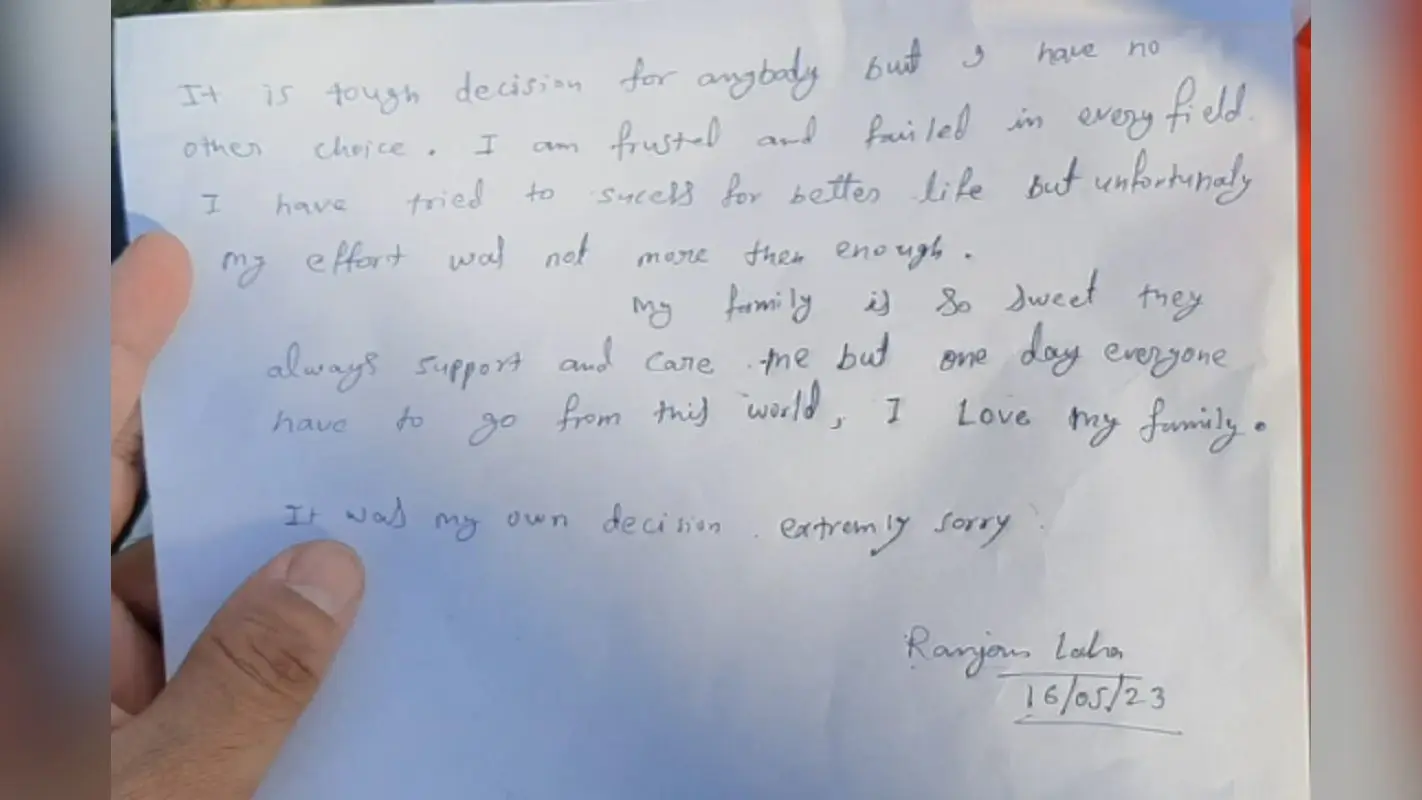 It is tough decision for anybody but I have no
other choice. I am frusted and failed in every field.
I have tried to sucess for better life But unfortunaly
my effort was not more then enough.
My family is so sweet they
always support and care me but one day everyone
have to go from this world, I Love my family.
It was my own decision. extremly sorry.
Ranjan Laha
16/05/23